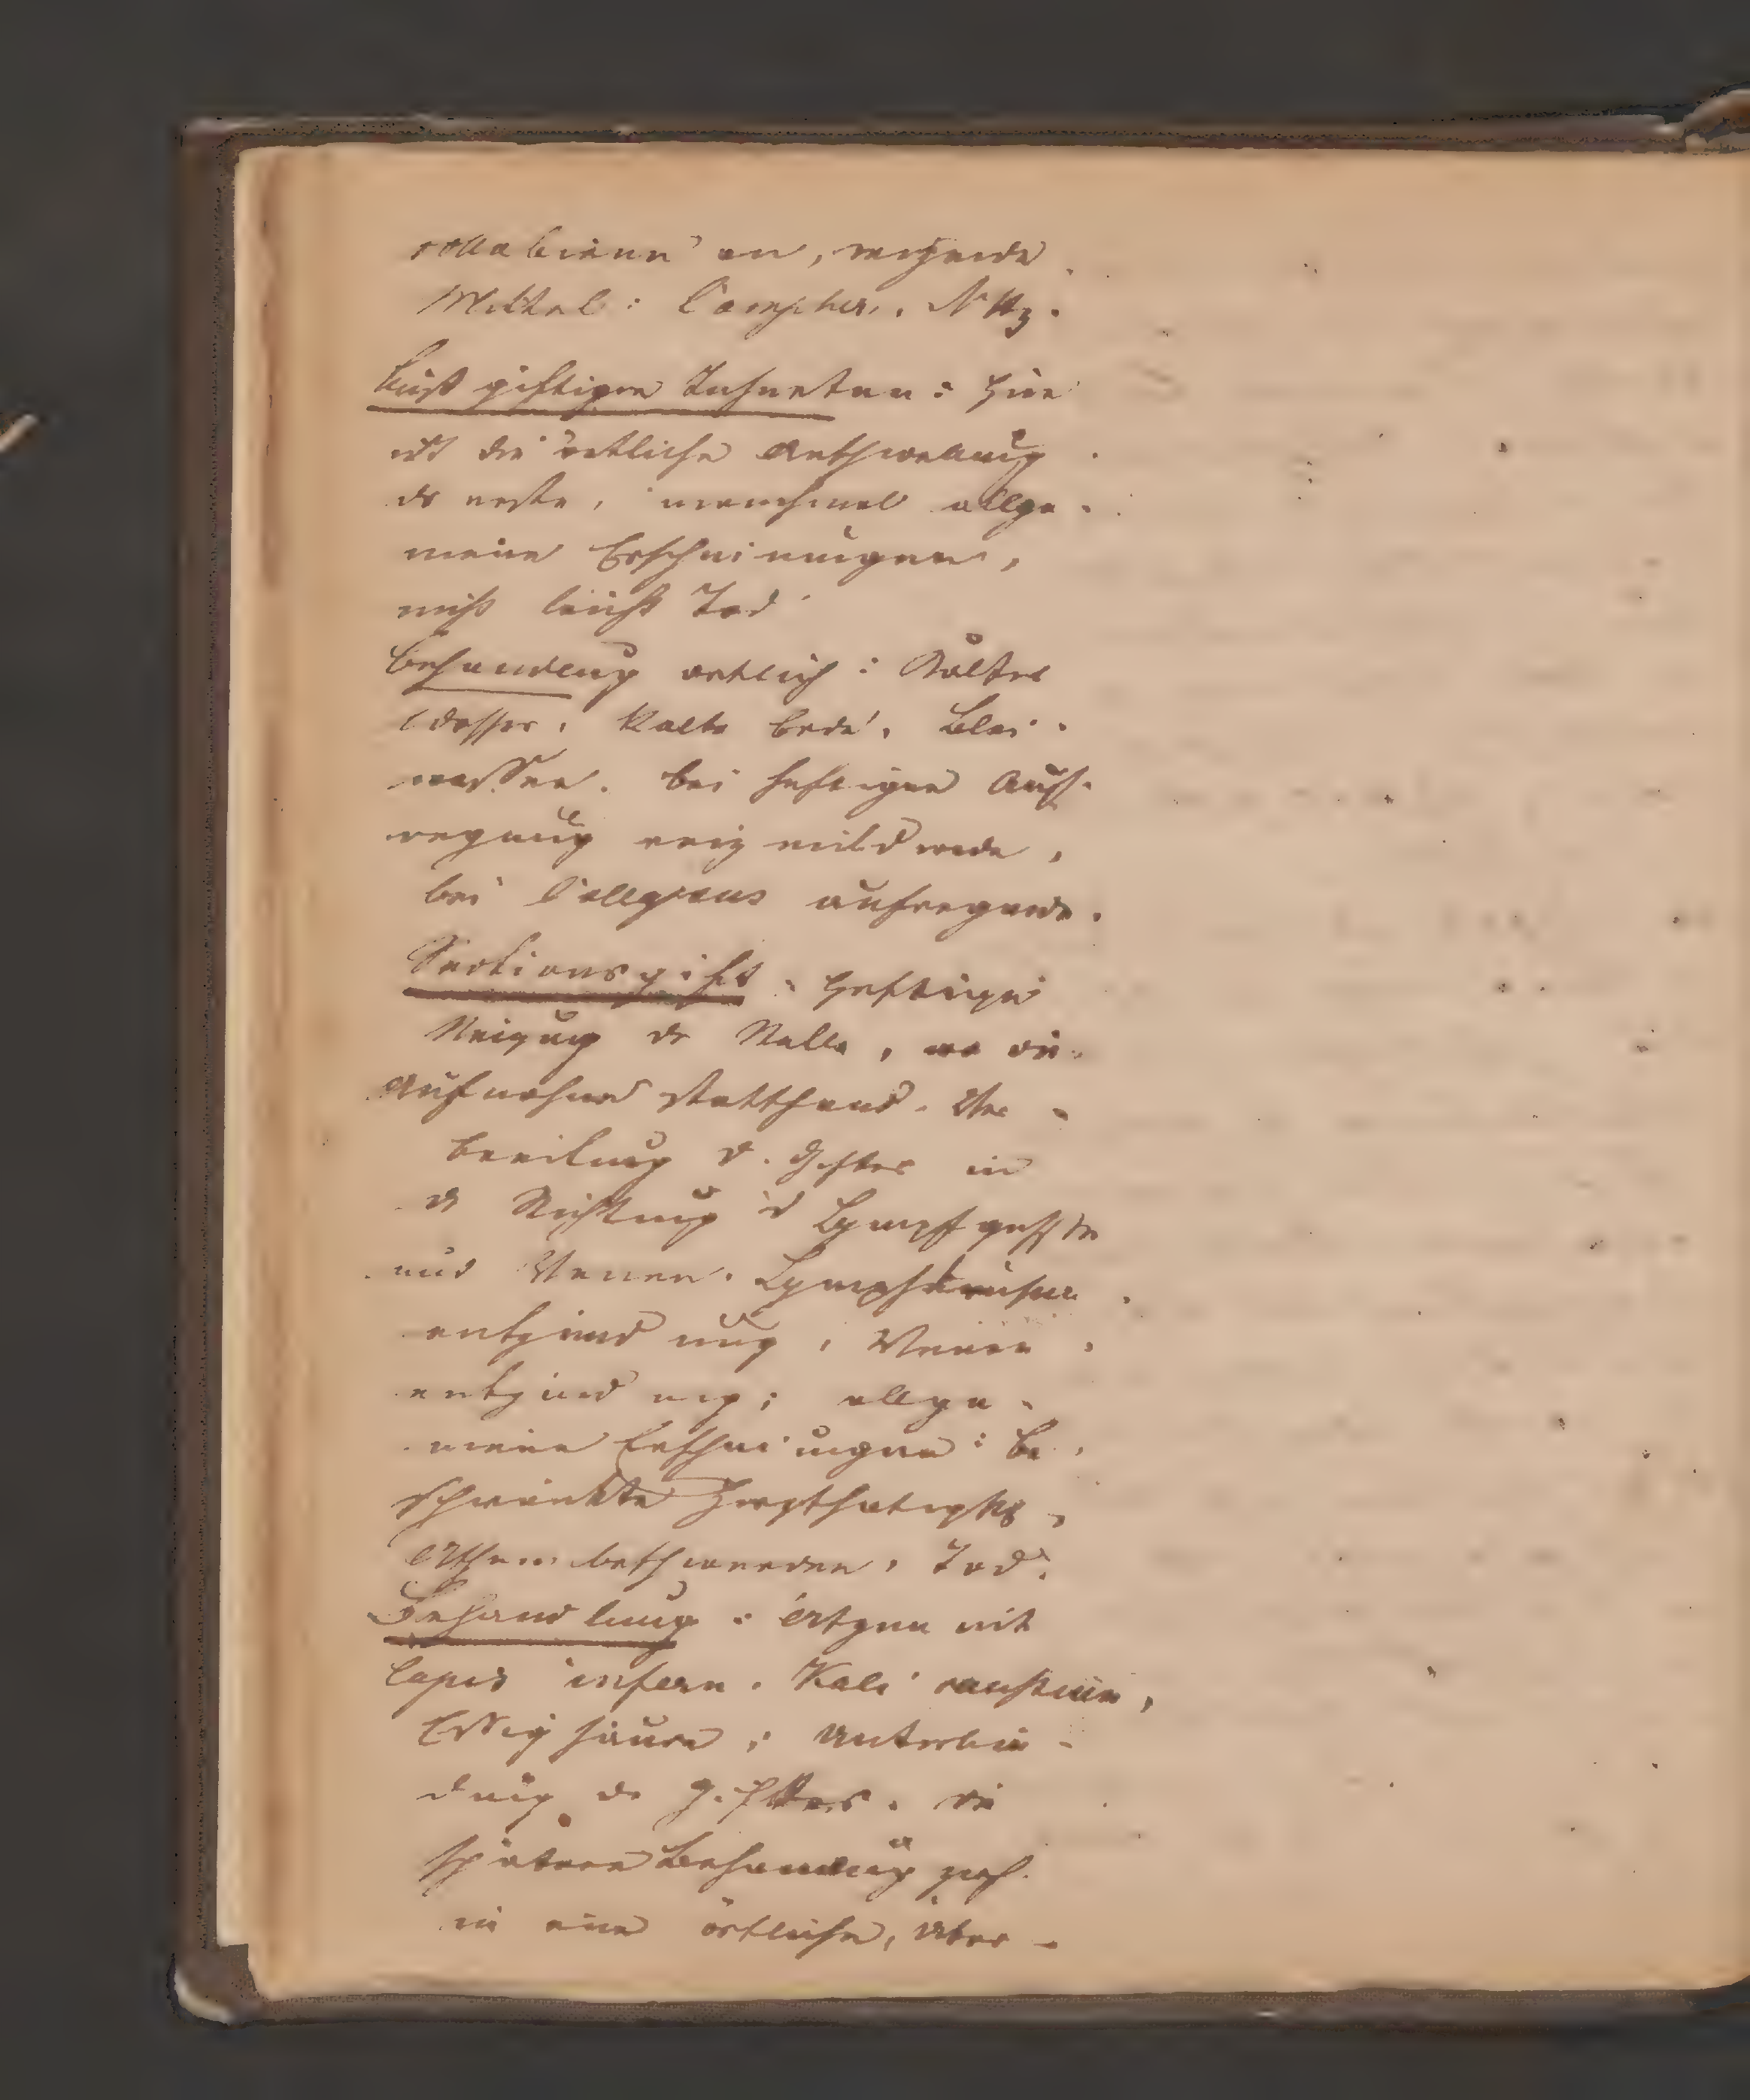 an, reizende
Mittel: Campher.
Biß giftiger Insecten: Hier
ist die örtliche Anschwellung
das erste, manchmal allge-
meine Erscheinungen,
nicht leicht Tod
Behandlung örtlich: Kaltes
Wasser, kalte Erde, Blei-
wasser. bei heftiger Auf-
regung reizmildernde,
bei Collapsus aufregende.
Sectionsgift: Heftige
Reizung der Stelle, wo die
Aufnahme stattfand. Ver-
breitung d. Giftes in
der Richtung d Lymphgefässe
und Venen. Lymphdrüsen
entzündung, Venen
entzündung; allge-
meine Erscheinungen: Be
schränkte Herzthätigkt,
Athembeschwerden, Tod.
Behandlung: Ätzen mit
Lapis infern. Kali causticum,
Essigsäure; Unterbin-
dung des Giftes. die
spätere Behandlung zerf.
in eine örtliche, über-